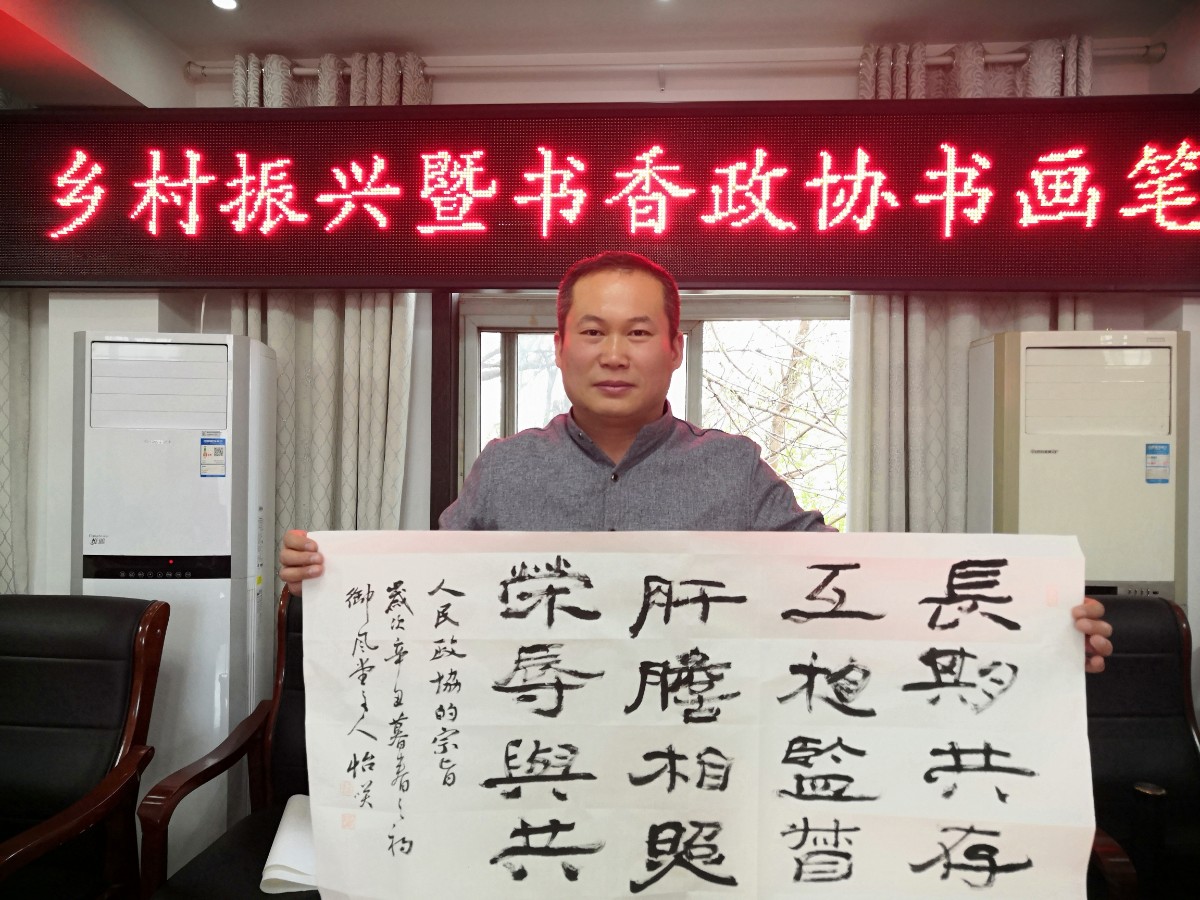 乡村振兴暨书香政协书画笔
長期共存
互相監督
肝膽相照
榮辱與共
人民政協的宗旨
歲次辛丑暮春之初
御风堂主人怡笑